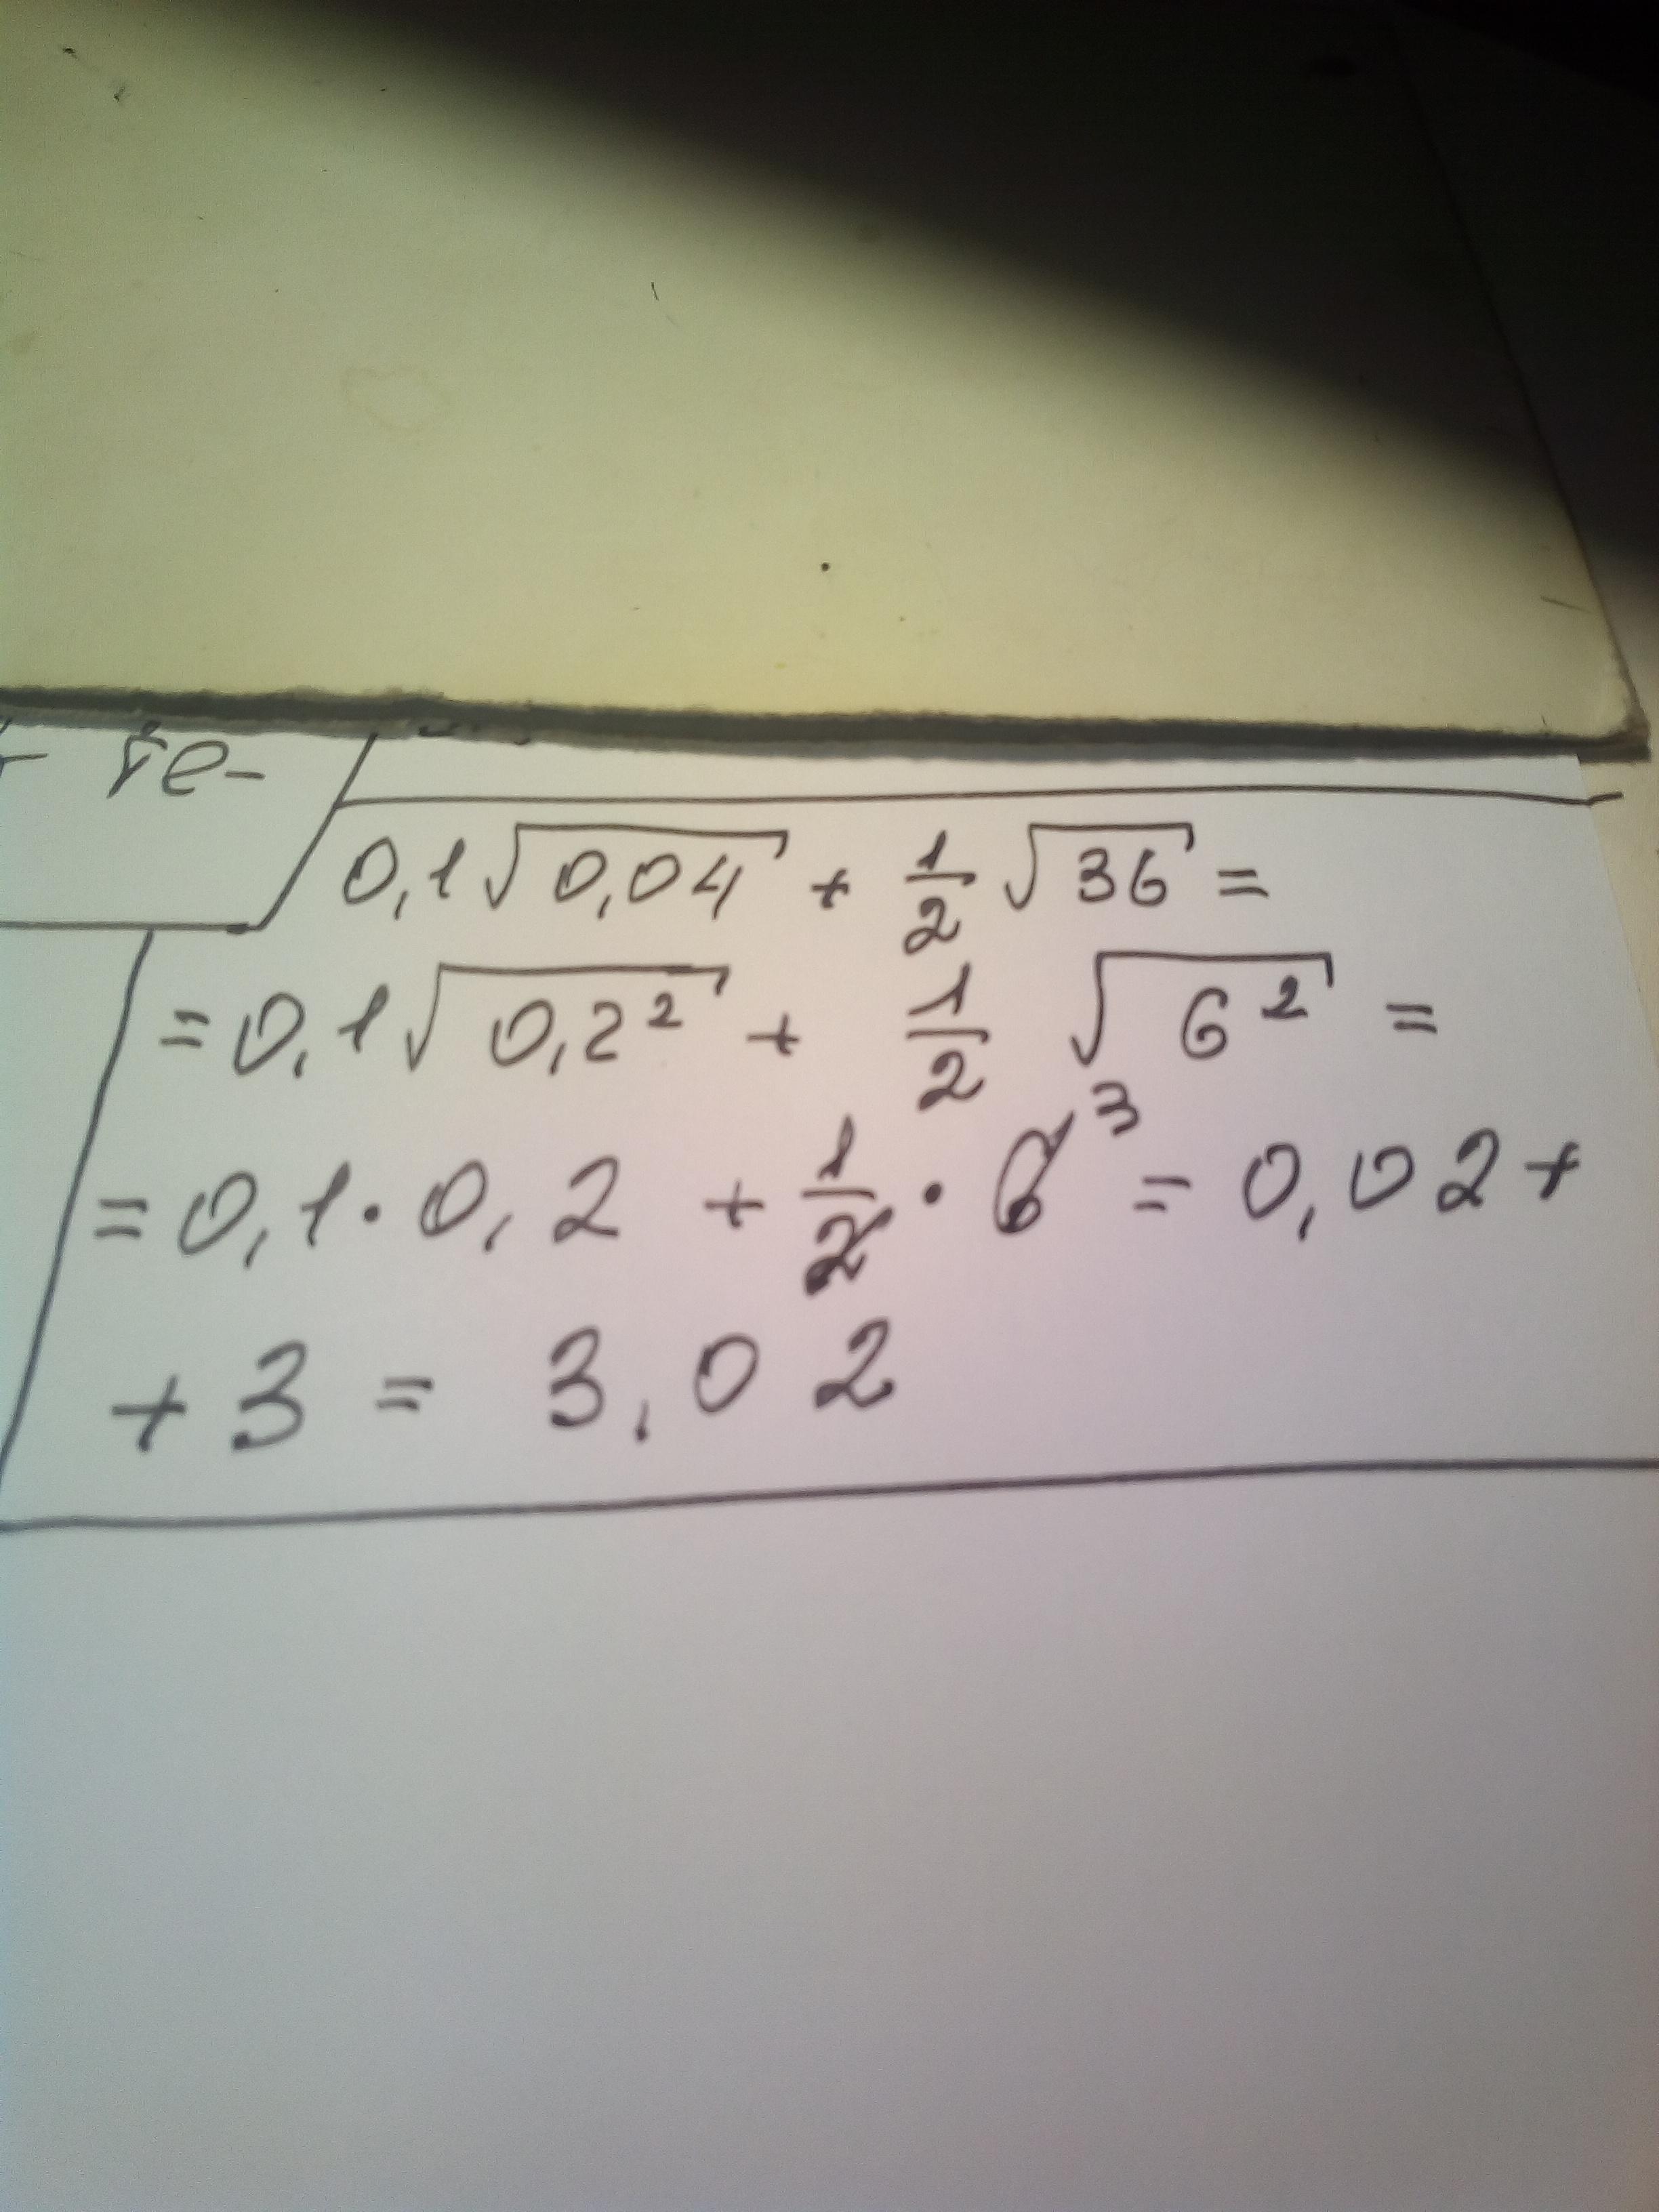 0,1√0,04 + 1/2 √36 =
= 0,1√0,2² + 1/2 √6² =
= 0,1 · 0,2 + 1/2 · 6 3 = 0,02 +
+ 3 = 3,02